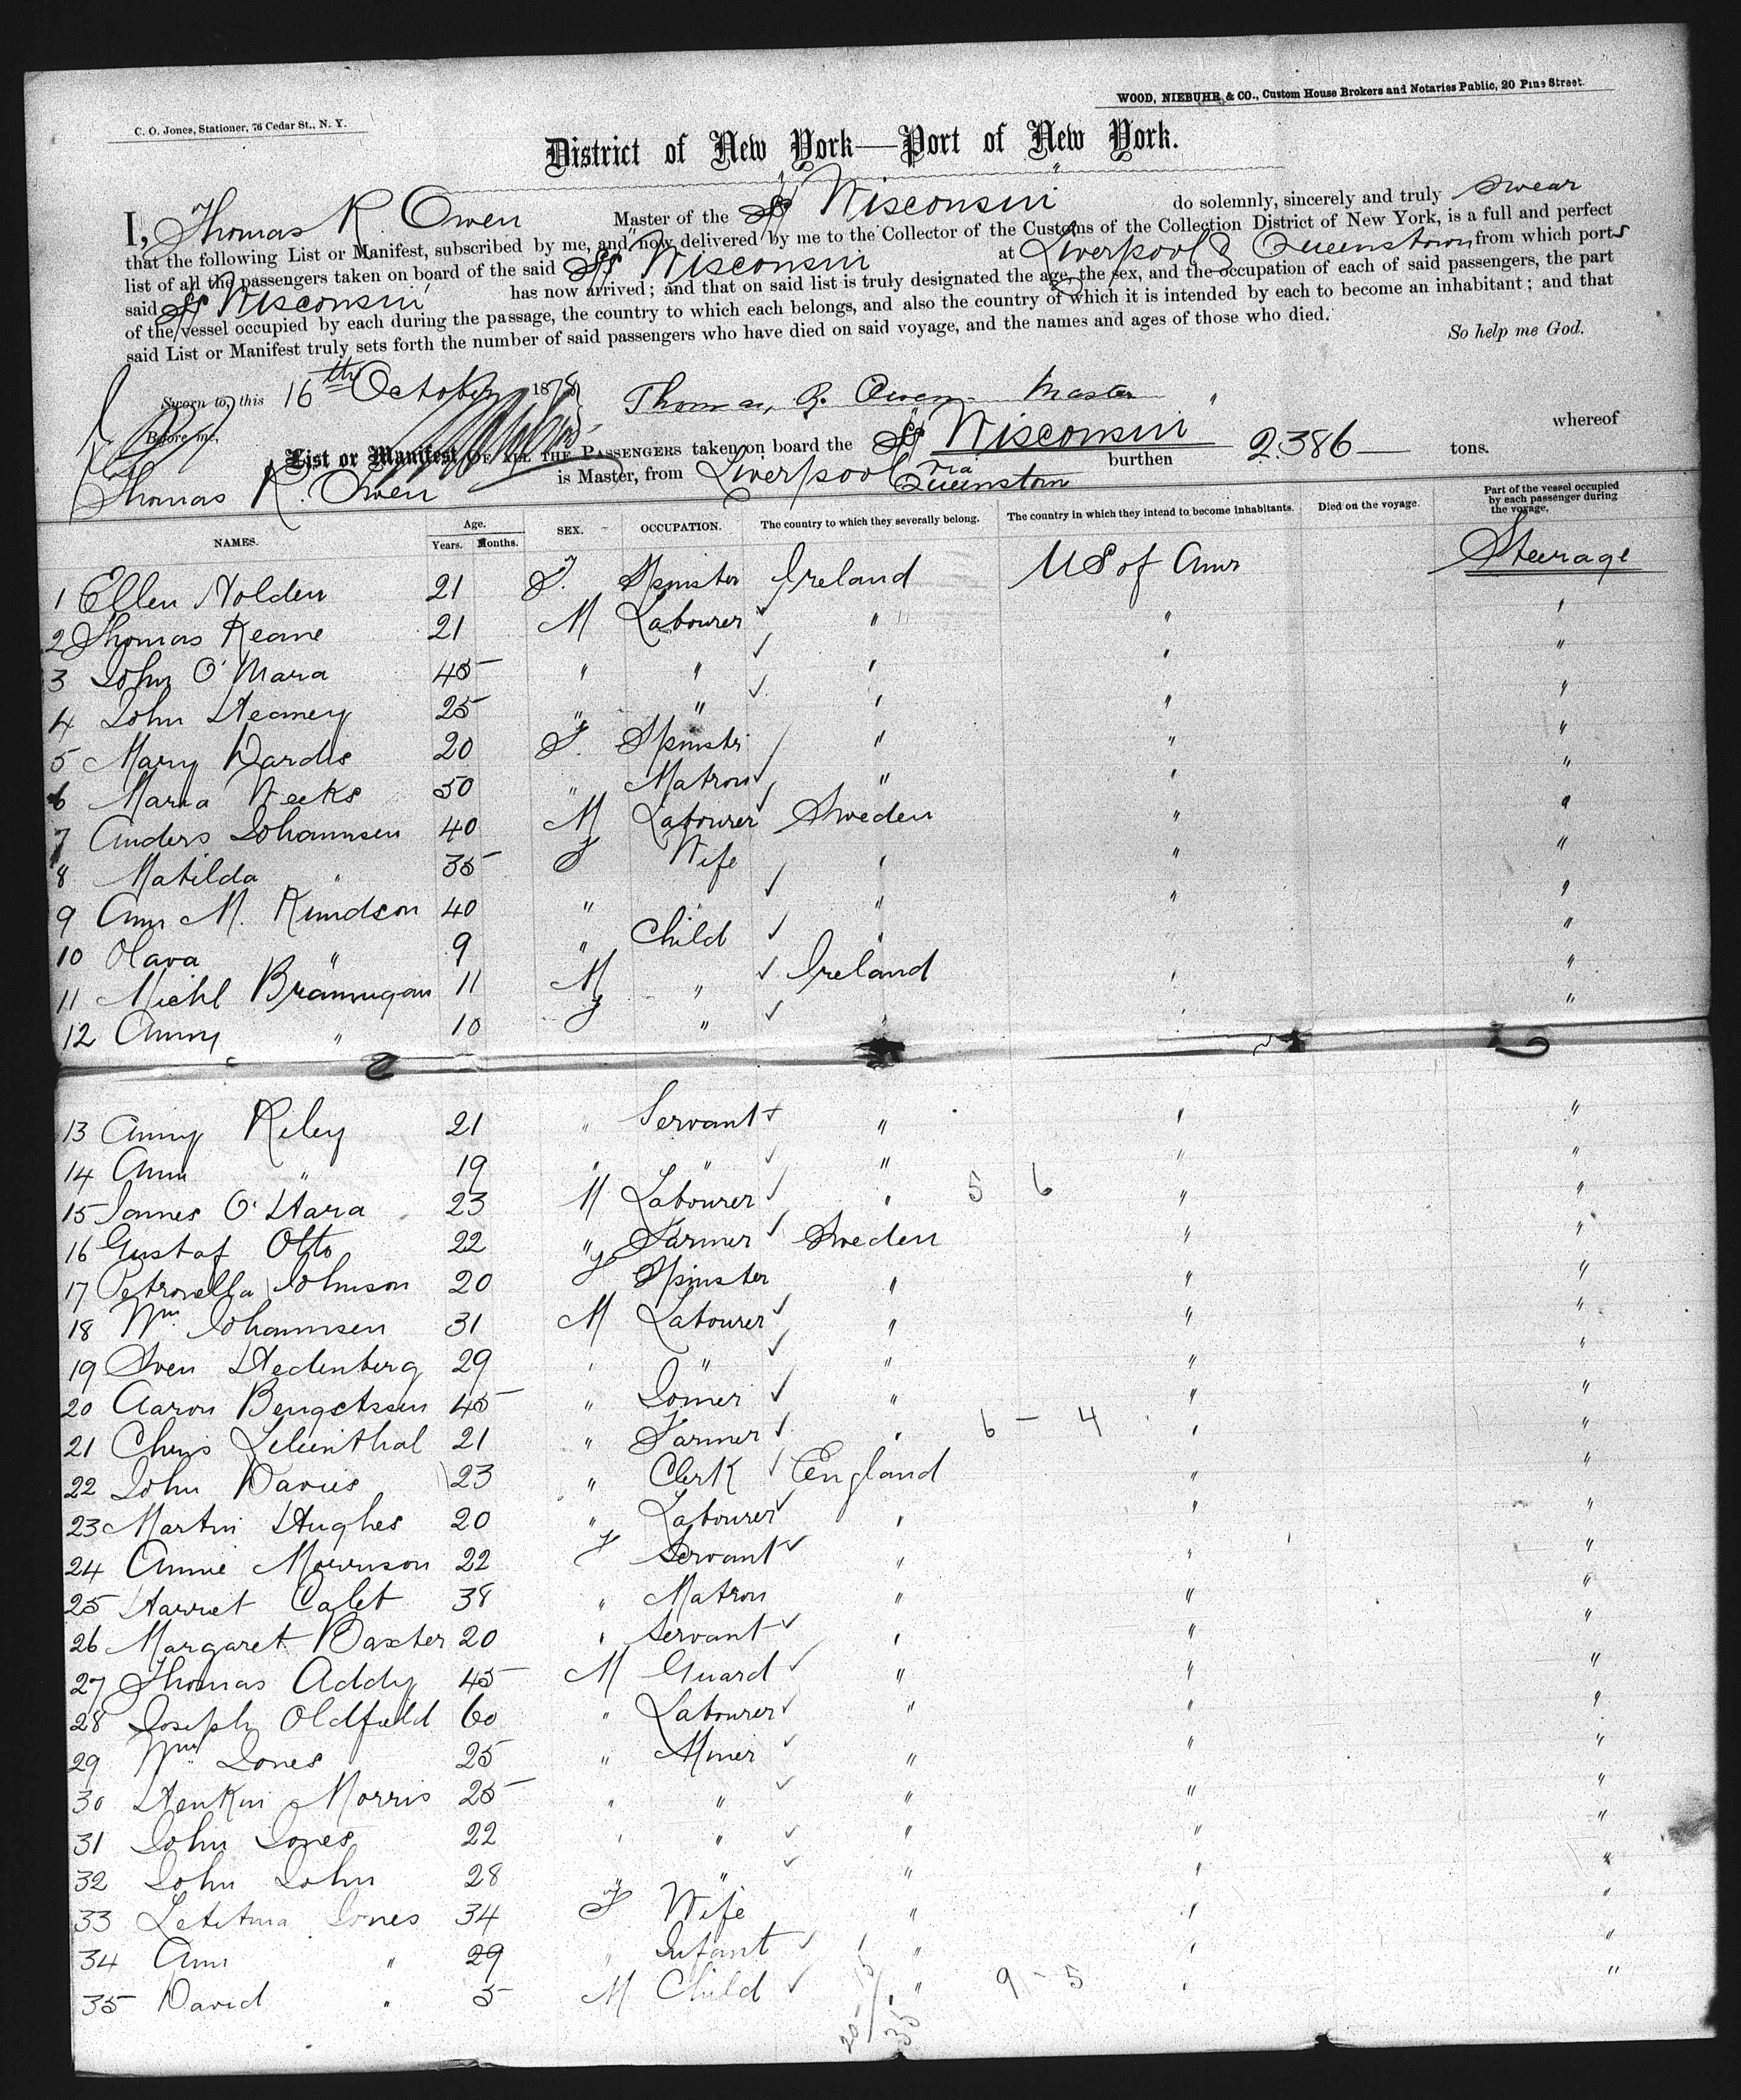 WOOD, NIEBUHR & CO., Custom House Brokers and Notaries Public, 20 Pine Street.
C. O. Jones, Stationer, 76 Cedar St., N. Y.
District of New York—Port of New York.
I, Thomas R. Owen Master of the SS "Wisconsin" do solemnly, sincerely and truly swear
that the following List or Manifest, subscribed by me, and now delivered by me to the Collector of the Customs of the Collection District of New York, is a full and perfect
list of all the passengers taken on board of the said SS Wisconsin at Liverpool & Queenstown from which ports
said SS Wisconsin has now arrived; and that on said list is truly designated the age, the sex, and the occupation of each of said passengers, the part
of the vessel occupied by each during the passage, the country to which each belongs, and also the country of which it is intended by each to become an inhabitant; and that
said List or Manifest truly sets forth the number of said passengers who have died on said voyage, and the names and ages of those who died.
So help me God.
Sworn to, this 16th October 1878 Thomas R. Owen Master
Before me,
List or Manifest OF ALL THE PASSENGERS taken on board the SS Wisconsin whereof
Thomas R. Owen is Master, from Liverpool via Queenstown burthen 2386 tons.
NAMES. Age. Years. Months. SEX. OCCUPATION. The country to which they severally belong. The country in which they intend to become inhabitants. Died on the voyage. Part of the vessel occupied by each passenger during the voyage.
1 Ellen Holden 21 F. Spinster Ireland US of Amr Steerage
2 Thomas Keane 21 M Labourer " " "
3 John O'Mara 45 " " " " "
4 John Heaney 25 " " " " "
5 Mary Dardis 20 F. Spinstr " " "
6 Maria Weeks 50 " Matron " " "
7 Anders Johannsen 40 M Labourer Sweden " "
8 Matilda " 35 F Wife " " "
9 Ann M. Knudson 40 " " " "
10 Olava " 9 " Child " "
11 Michl Brannigan 11 M " Ireland " "
12 Anny " 10 F " " " "
13 Anny Riley 21 " Servant " " "
14 Ann " 19 " " " " "
15 James O'Hara 23 M Labourer " 5 6 " "
16 Gustaf Otto 22 " Farmer Sweden " "
17 Petronella Johnson 20 F Spinster " " "
18 Wm. Johannsen 31 M Labourer " " "
19 Sven Hedenberg 29 " " " " "
20 Aaron Bengctssen 45 " Joiner " " "
21 Chris Lilienthal 21 " Farmer " 6 - 4 " "
22 John Davies 23 " Clerk England " "
23 Martin Hughes 20 " Labourer " " "
24 Annie Morrison 22 F Servant " " "
25 Harriet Calet 38 " Matron " " "
26 Margaret Baxter 20 " Servant " " "
27 Thomas Addy 45 M Guard " " "
28 Joseph Oldfield 60 " Labourer " " "
29 Wm Jones 25 " Miner " " "
30 Henkin Morris 25 " " " " "
31 John Jones 22 " " " " "
32 John John 28 " " " " "
33 Letitina Jones 34 F Wife " " "
34 Ann " 29 " Infant " " "
35 David " 5 M Child " 9 - 5 " "
20 15
35